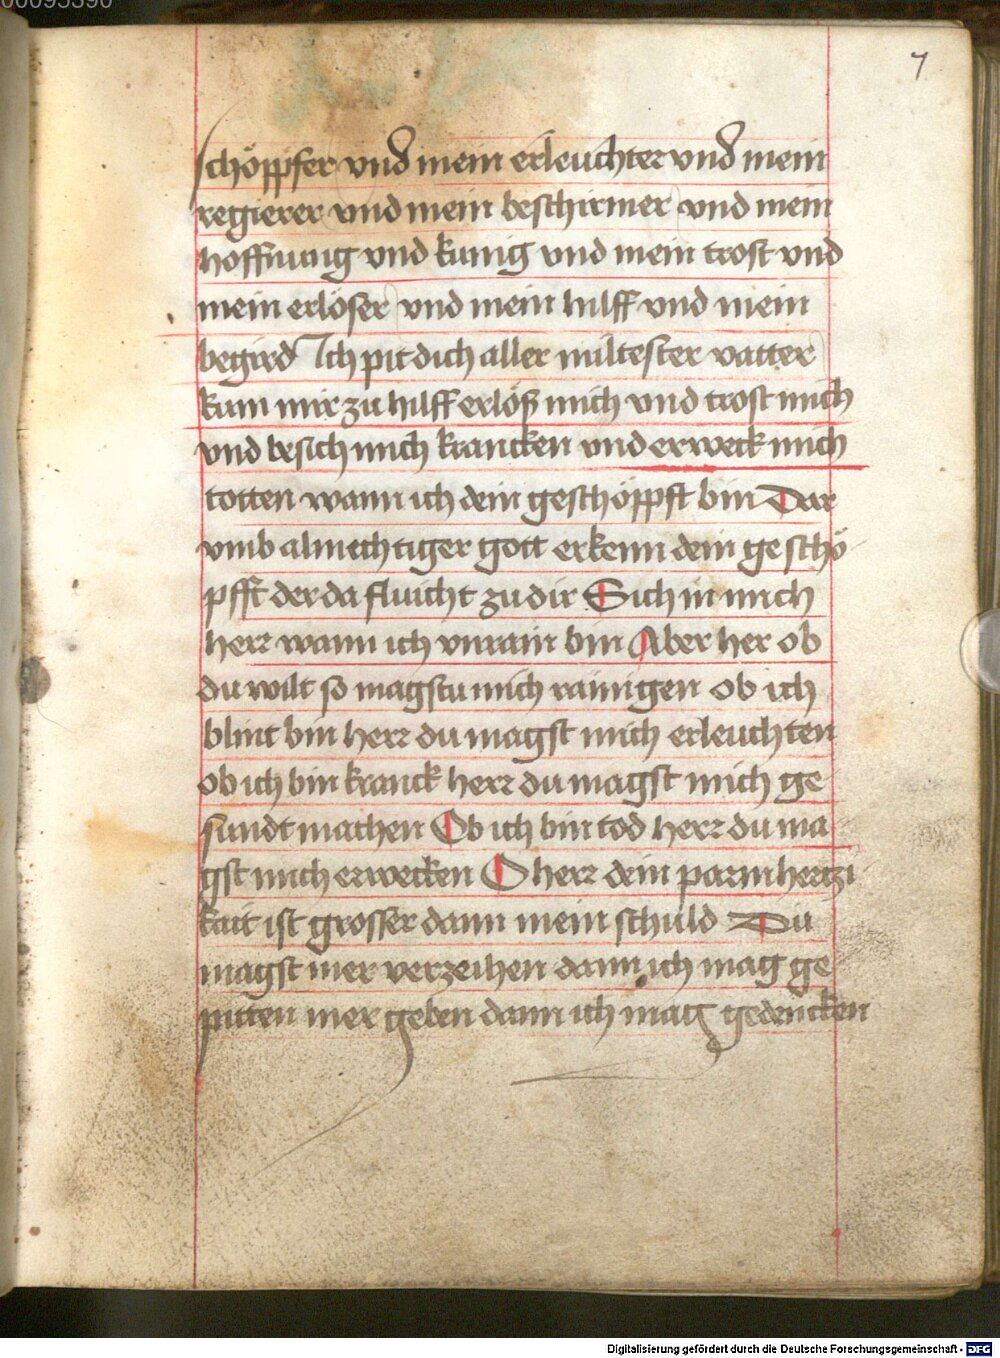 00095390
7
schöppfer vnd mein erleuchter vnd mein
regierer vnd mein beschirmer vnd mein
hoffnung vnd kunig vnd mein trost vnd
mein erlöser vnd mein hilff vnd mein
begird Ich pit dich aller miltester vatter
kum mir zu hilff erlöß mich vnd trost mich
vnd besich mich krancken vnd erweck mich
totten wann ich dein geschöppft bin Dar
vmb almechtiger gott erkenn dein geschö
pfft der da fluicht zu dir Sich in mich
herr wann ich vnrain bin Aber her ob
du wilt so magstu mich rainigen ob ich
blint bin herr du magst mich erleuchten
ob ich bin kranck herr du magst mich ge
sundt machen Ob ich bin tod herr du ma
gst mich erwecken O herr dein parmhertzi
kait ist grosser dann mein schuld Du
magst mer verzeihen dann ich mag ge
pitten mer geben dann ich mag gedencken
Digitalisierung gefördert durch die Deutsche Forschungsgemeinschaft - DFG